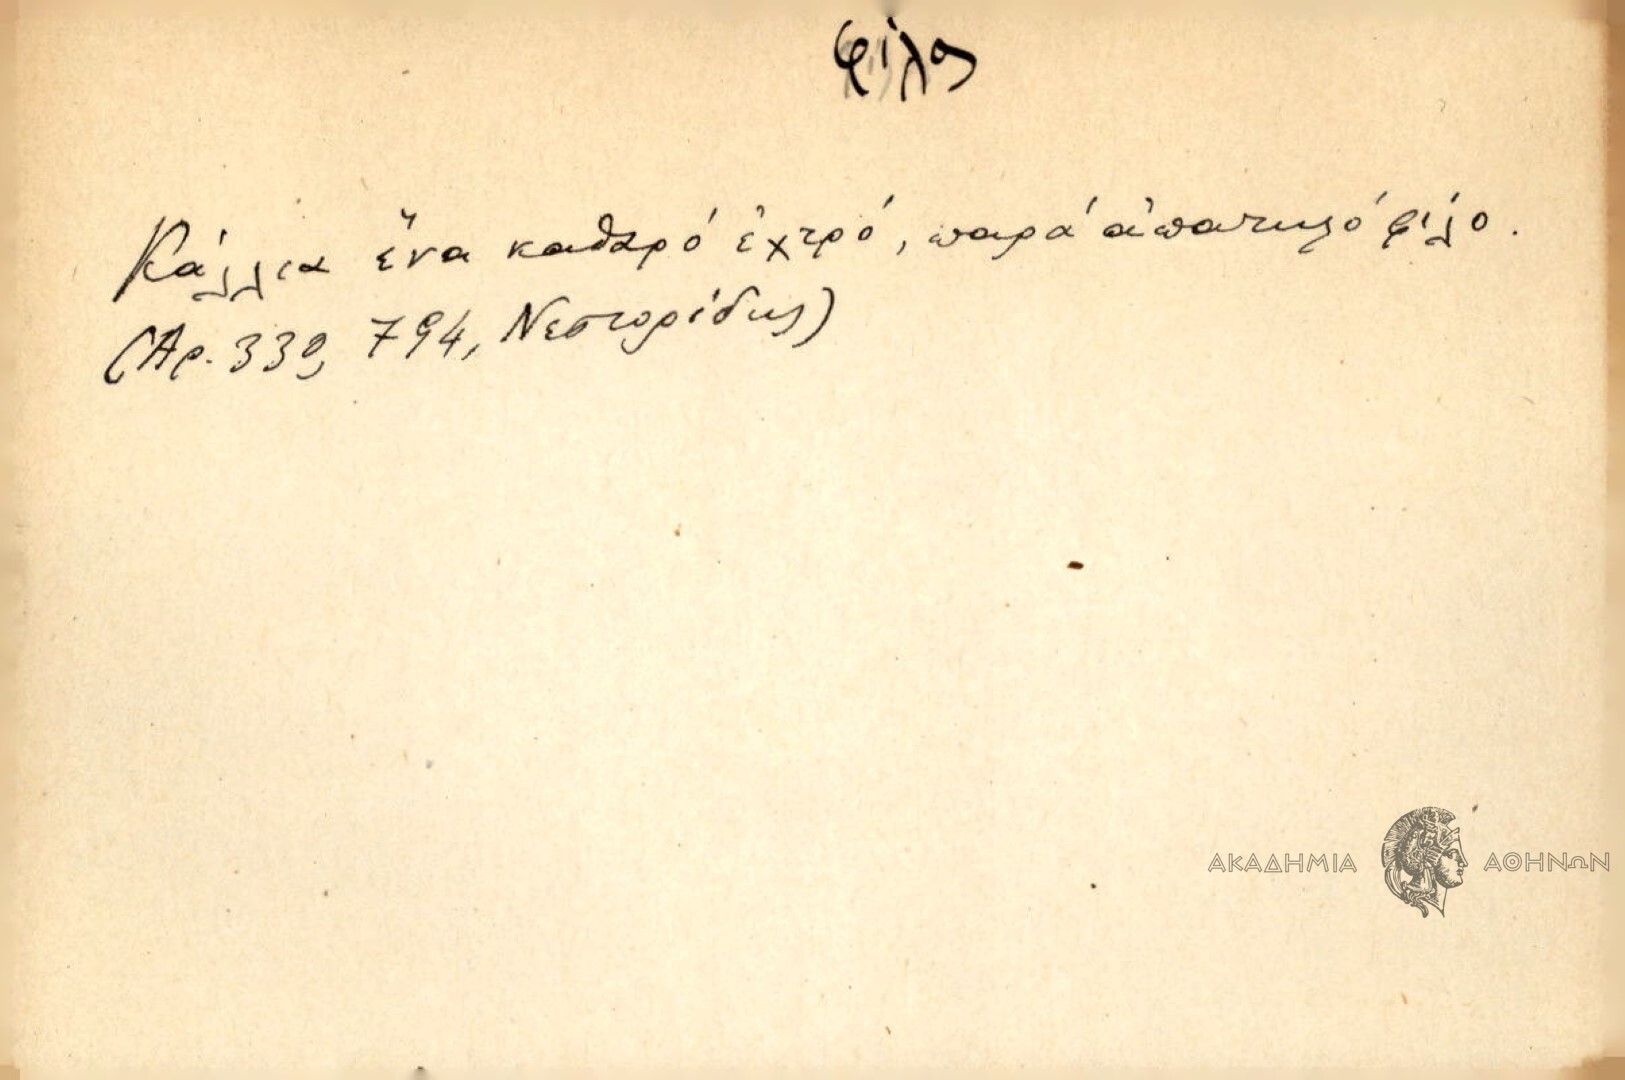 φίλος
Κάλλια ἕνα καθαρό ἐχτρό, παρά ἀπατηλό φίλο.
(Αρ. 339, 794, Νεστορίδης)
ΑΚΑΔΗΜΙΑ ΑΘΗΝΩΝ